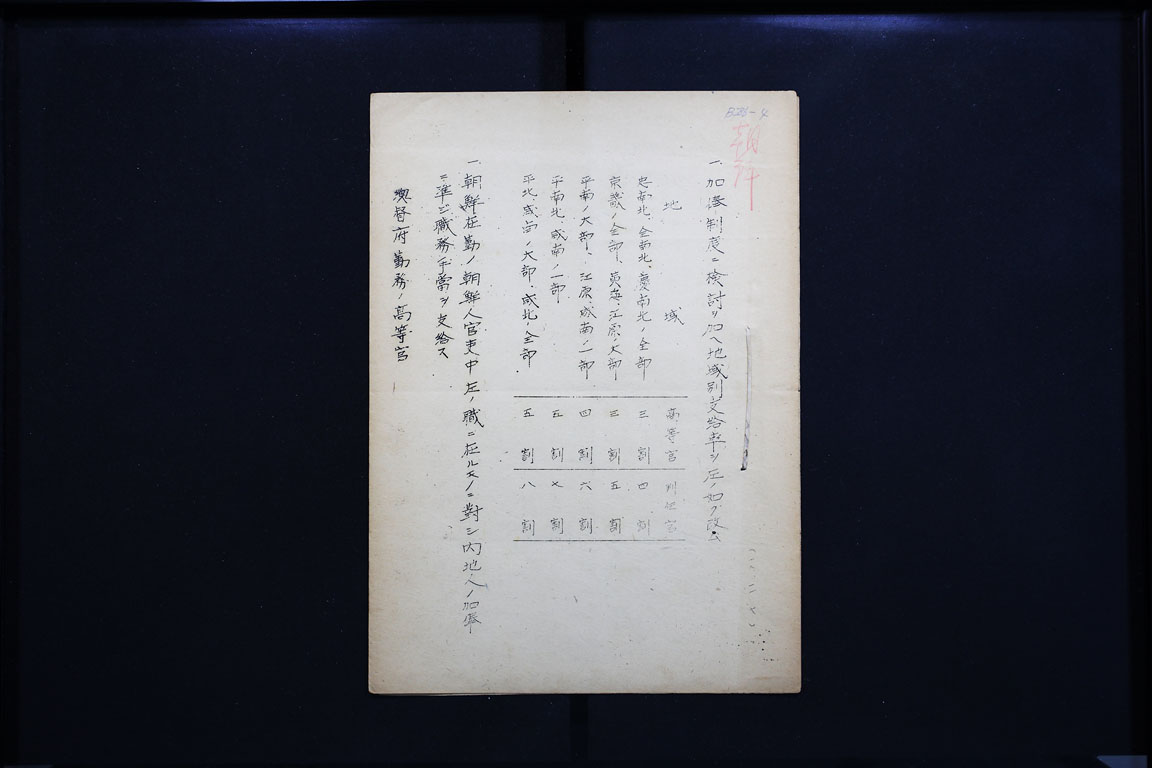 B26-4
朝鮮
一、加俸制度ニ検討ヲ加ヘ地域別支給率ヲ左ノ如ク改ム
地域 高等官 判任官
忠南北、全南北、慶南北ノ全部 三割 四割
京畿ノ全部、黄海、江原ノ大部 三割 五割
平南ノ大部、江原、咸南ノ一部 四割 六割
平南北、咸南ノ一部 五割 七割
平北、咸南ノ大部、咸北ノ全部 五割 八割
一、朝鮮在勤ノ朝鮮人官吏中左ノ職ニ在ルモノニ對シ内地人ノ加俸
ニ準ジ職務手當ヲ支給ス
總督府勤務ノ高等官